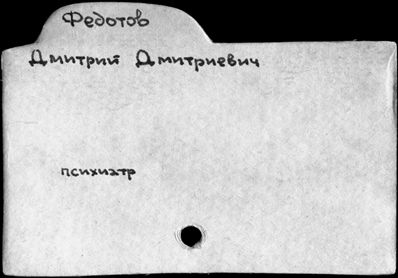 Федотов
Дмитрий Дмитриевич
психиатр